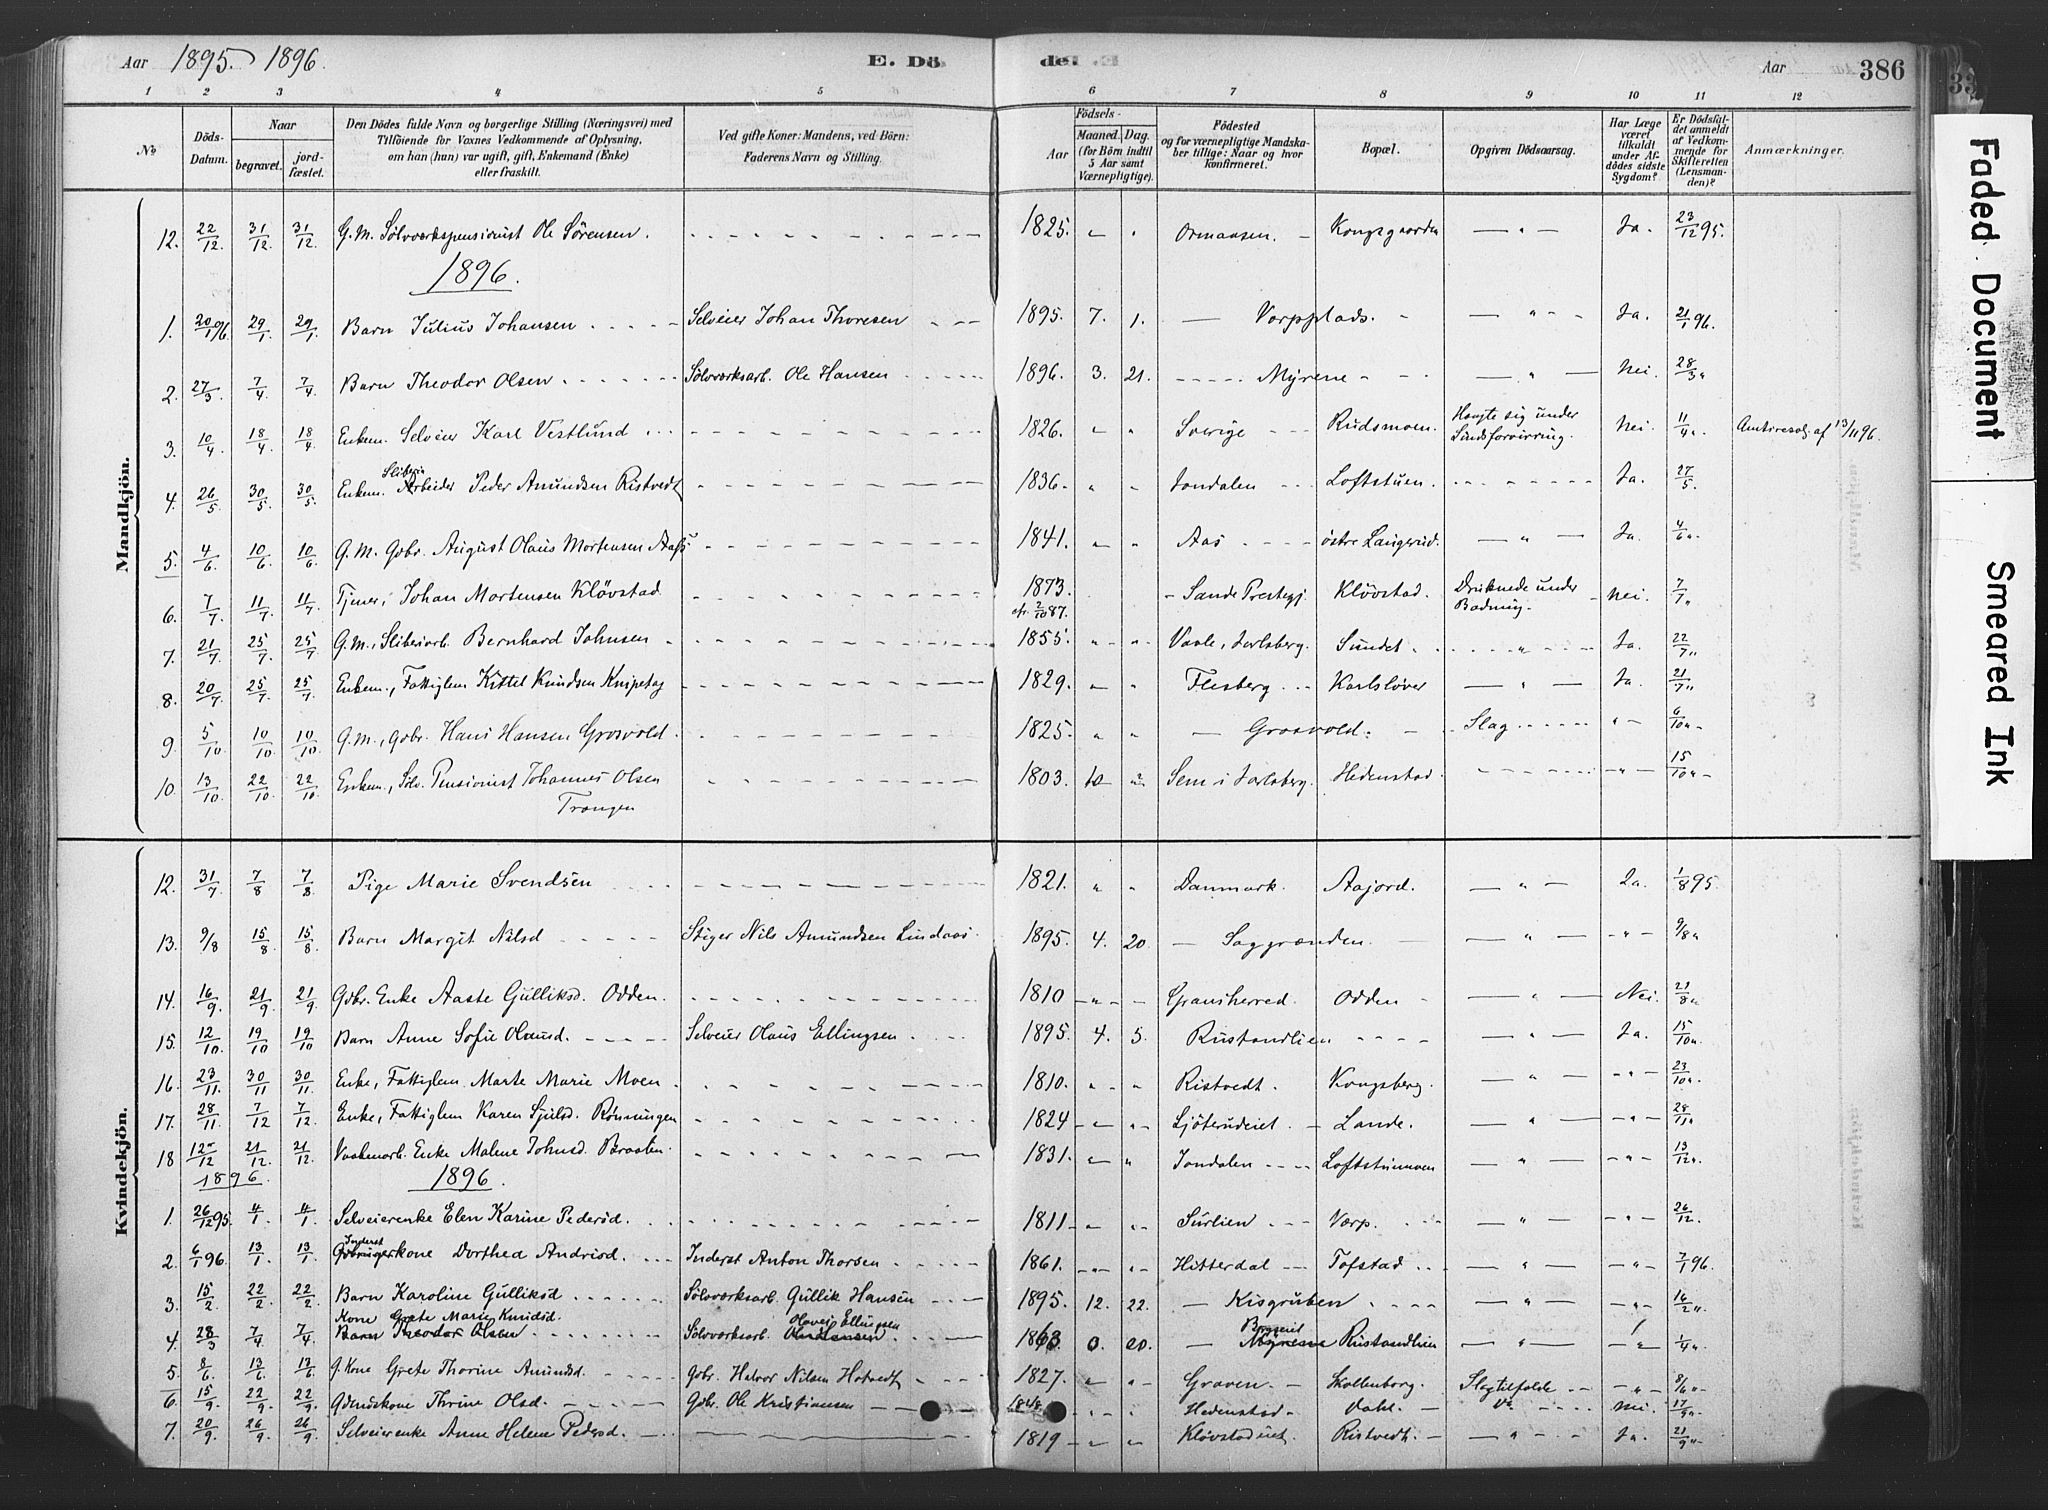 Aar 1895. 1896. E. Dö de. Aar 386
1 2 3 4 5 6 7 8 9 10 11 12
No
Döds-Datum.
Naar begravet. jord-fæstet.
Den Dödes fulde Navn og borgerlige Stilling (Næringsvei) med Tilföiende for Voxnes Vedkommende af Oplysning, om han (hun) var ugift, gift, Enkemand (Enke) eller fraskilt.
Ved gifte Koner: Mandens, ved Börn: Faderens Navn og Stilling.
Födsels- Aar Maaned. Dag. (for Börn indtil 5 Aar samt Værnepligtige).
Födested og for værnepligtige Mandskaber tillige: Naar og hvor konfirmeret.
Bopæl.
Opgiven Dödsaarsag.
Har Læge været tilkaldt under Afdödes sidste Sygdom?
Er Dödsfaldet anmeldt af Vedkommende for Skifteretten (Lensmanden)?
Anmærkninger.
Mandkjön.
12. 22/12. 31/12 31/12. G. M. Sölvværkspensionist Ole Sörensen. 1825. " " Ormaasen. Kongsgaarden " Ja. 23/12 95.
1896.
1. 20/1 96 29/1 29/1 Barn Julius Johansen Selveier Johan Thoresen 1895. 7. 1. Vorpplads. " Ja. 21/1 96.
2. 27/3 7/4 7/4 Barn Theodor Olsen Sölvværksarb. Ole Hansen 1896. 3. 21. Myrene " Nei. 28/3 "
3. 10/4 18/4 18/4 Enkem. Selveier Karl Vestlund 1826. " " Sverige Rudsmoen. Hængte sig under Sindsforvirring. Nei. 11/4 " Amtsresol. af 13/4 96.
4. 26/5 30/5 30/5 Enkem. Sliberiarbeider Peder Amundsen Ristvedt 1836. " " Jondalen Loftstuen. Ja. 27/5
5. 4/6 10/6 10/6 G. M. Gbr. August Olaus Mortensen Aas 1841. " " Aas östre Langerud. " Ja. 4/6 "
6. 7/7 11/7 11/7 Tjener, Johan Mortensen Klövstad 1873 2/10 87. Sande Prestegj Klövstad. Druknede under Badning. Nei. 7/7 "
7. 21/7 25/7 25/7 G. M., Sliberiarb. Bernhard Johnsen 1855 " " Vaale, Jarlsberg. Sundet. " Ja. 22/7 "
8. 20/7 25/7 25/7 Enkem., Fattiglem Kittel Knudsen Knipetag 1829. " " Flesberg Karlslöver " Ja. 21/7 "
9. 5/10 10/10 10/10 G. M., Gbr. Hans Hansen Grosvold. 1825. " " Grosvold. Slag " 6/10 "
10. 13/10 22/10 22/10 Enkem., Sölv. Pensionist Johannes Olsen 1803 10 Sem i Jarlsberg. Hedenstad. " 15/10 "
Trangen
Kvindekjön.
12. 31/7 7/8 7/8 Pige Marie Svendsen 1821. " " Danmark. Aajord. " Ja. 1/8 95.
13. 9/8 15/8 15/8 Barn Margit Nilsd Stiger Nils Amundsen Lindaas. 1895. 4. 20. Saggrænden " " 9/8 "
14. 16/9 21/9 21/9 Gbr. Enke Aaste Gulliksd. Odden. 1810 " Gransherred. Odden " Nei. 21/8 "
15. 12/10 19/10 19/10 Barn Anne Sofie Olausd. Selveier Olaus Ellingsen 1895. 4. 5. Rustandlien " Ja. 15/10 "
16. 23/11 30/11 30/11 Enke, Fattiglem Marte Marie Moen 1810. " " Ristvedt. Kongsberg. " " 23/10 "
17. 28/11 7/12 7/12 Enke, Fattiglem Karen Sjulsd. Rönningen 1824 " " Sjöterudeiet Lande. " " 28/11 "
18 12/12 21/12 21/12 Vaabenarb. Enke Malene Johnsd Braaten 1831. " " Jondalen Loftstumoen " " 13/12 "
1896. 1896.
1. 26/12 95. 4/1 4/1 Selveierenke Elen Karine Pedersd. 1811 " " Surlien Vorp. " " 26/12
2. 6/1 96 13/1 13/1 Gbrugerkone Inderst Dorthea Andrisd. Inderst Anton Thorsen 1861. " " Hitterdal Tofstad " " 7/1 96.
3. 15/2 22/2 22/2 Barn Karoline Gulliksd Sölvværksarb. Gullik Hansen 1895. 12. 22. Kisgruben " " 16/2 "
Kone Grete Marie Knudsd. Olaves Ellingsen
4. 28/3 7/4 7/4 Barn Theodor Olsen Sölvværksarb. 1863 0. 20. Myrene Rustandlien " " 1/4 "
5. 8/6 13/6 13/6 G. Kone Grete Thorine Amundsd. Gbr. Halvor Nilsen Hotvedt 1827. " " Graven. Skollenborg. Slagtilfælde " 8/6 "
6. 15/9 22/9 22/9 Gdmdskone Thrine Olsd. Gbr. Ole Kristiansen 1848. " " Hedenstad Dahl. Nei. 17/9 "
7. 20/9 26/9 26/9 Selveierenke Anne Helene Pedersd. 1819 " " Klövstadeiet Ristvedt. " Ja. 21/9 "
Faded Document
Smeared Ink